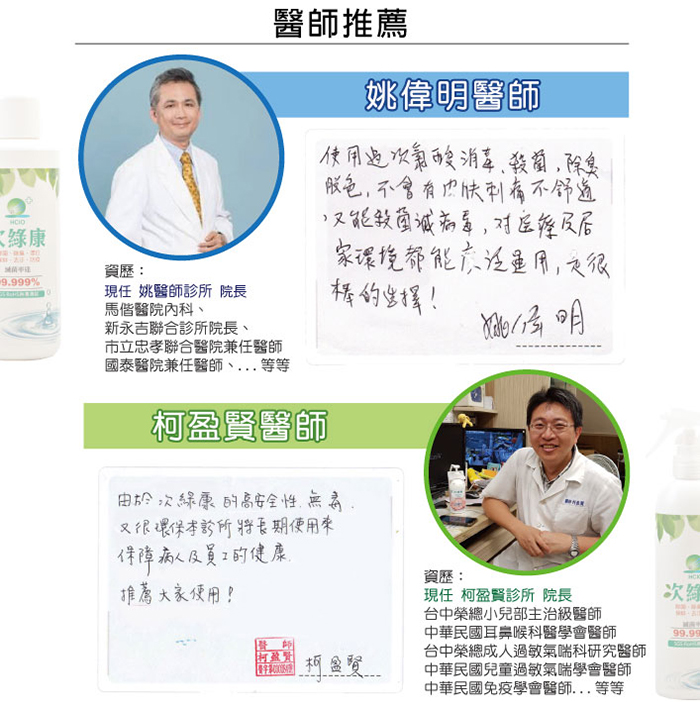 醫師推薦
姚偉明醫師
使用過次氯酸消毒、殺菌,除臭
脫色,不會有皮膚刺痛不舒適
,又能殺菌滅病毒,對醫療及居
家環境都能廣泛運用,是很
棒的選擇!
姚偉明
資歷:
現任 姚醫師診所 院長
馬偕醫院內科、
新永吉聯合診所院長、
市立忠孝聯合醫院兼任醫師
國泰醫院兼任醫師、...等等
HClO
次綠康
99.999%
柯盈賢醫師
由於次綠康的高安全性.無毒.
又很環保本診所將長期使用來
保障病人及員工的健康.
推薦大家使用!
醫師
柯盈賢
柯盈賢
資歷:
現任 柯盈賢診所 院長
台中榮總小兒部主治級醫師
中華民國耳鼻喉科醫學會醫師
台中榮總成人過敏氣喘科研究醫師
中華民國兒童過敏氣喘學會醫師
中華民國免疫學會醫師...等等
次綠
99.99